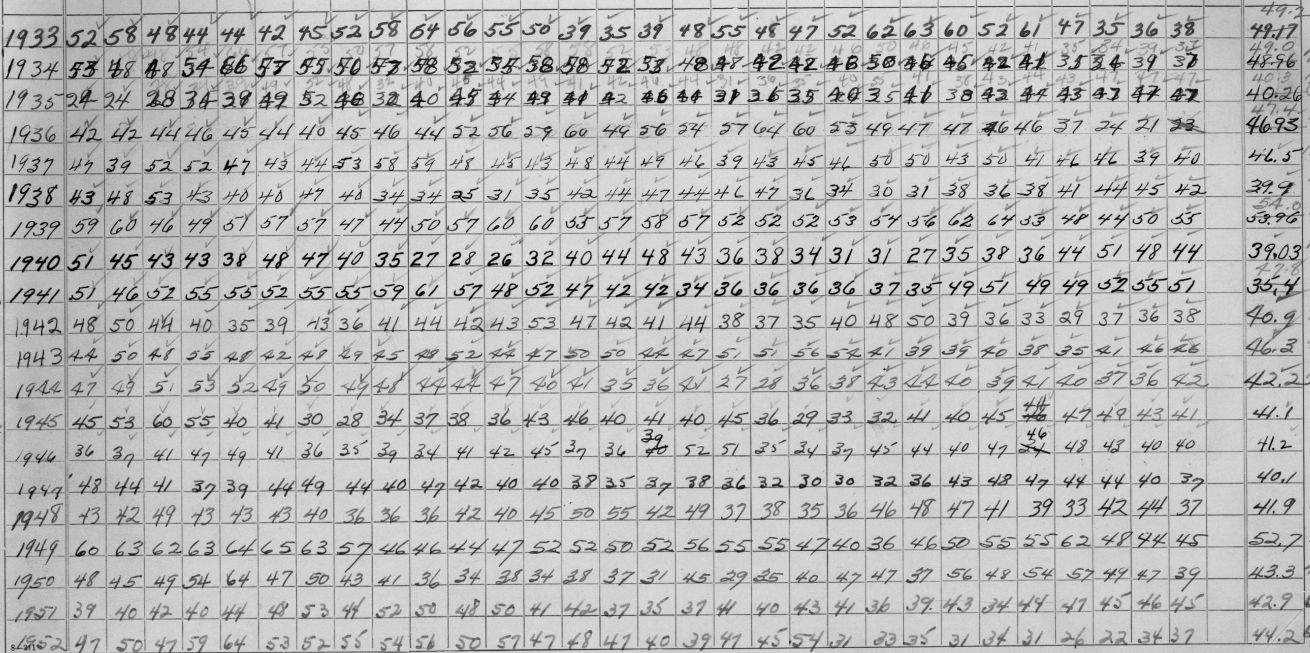 49.2
1933 52 58 48 44 44 42 45 52 58 64 56 55 50 39 35 39 48 55 48 47 52 62 63 60 52 61 47 35 36 38 49.17
49.0
1934 48 54 66 57 55 50 57 58 52 55 58 58 52 53 48 48 42 42 46 50 46 45 42 41 35 34 39 37 48.96
40.3
1935 24 24 28 34 39 49 52 46 32 40 45 44 49 41 42 46 44 31 36 35 40 35 41 38 43 44 43 47 47 47 40.26
47.4
1936 42 42 44 46 45 44 40 45 46 44 52 56 59 60 49 56 54 57 64 60 53 49 47 47 46 46 37 24 21 23 46.93
1937 47 39 52 52 47 43 44 53 58 59 48 45 43 48 44 49 46 39 43 45 46 50 50 43 50 41 46 46 39 40 46.5
1938 43 48 53 43 40 40 47 40 34 34 25 31 35 42 44 47 44 46 47 36 34 30 31 38 36 38 41 44 45 42 39.9
54.0
1939 59 60 46 49 51 57 57 47 44 50 57 60 60 55 57 58 57 52 52 52 53 54 56 62 64 53 48 44 50 55 53.96
1940 51 45 43 43 38 48 47 40 35 27 28 26 32 40 44 48 43 36 38 34 31 31 27 35 38 36 44 51 48 44 39.03
47.8
1941 51 46 52 55 55 52 55 55 59 61 57 48 52 47 42 42 34 36 36 36 36 37 35 49 51 49 49 52 55 51 35.4
1942 48 50 44 40 35 39 43 36 41 44 42 43 53 47 42 41 44 38 37 35 40 48 50 39 36 33 29 37 36 38 40.9
1943 44 50 48 55 48 42 48 49 45 48 52 44 47 50 50 44 47 51 51 56 54 41 39 39 40 38 35 41 46 46 46.3
1944 47 49 51 53 52 49 50 49 48 44 44 47 40 41 35 36 41 27 28 36 38 43 44 40 39 41 40 37 36 42 42.2
44
1945 45 53 60 55 40 41 30 28 34 37 38 36 43 46 40 41 40 45 36 29 33 32 41 40 45 47 49 43 41 41.1
39 46
1946 36 37 41 47 49 41 36 35 39 34 41 42 45 37 36 52 51 35 34 37 45 44 40 47 24 48 43 40 40 41.2
1947 48 44 41 37 39 44 49 44 40 47 42 40 40 38 35 37 38 36 32 30 30 32 36 43 48 47 44 44 40 37 40.1
1948 43 42 49 43 43 43 40 36 36 36 42 40 45 50 55 42 49 37 38 35 36 46 48 47 41 39 33 42 44 37 41.9
1949 60 63 62 63 64 65 63 57 46 46 44 47 52 52 50 52 56 55 55 47 40 36 46 50 55 55 62 48 44 45 52.7
1950 48 45 49 54 64 47 50 43 41 36 34 38 34 38 37 31 45 29 35 40 47 47 37 56 48 54 57 49 47 39 43.3
1951 39 40 42 40 44 48 53 44 52 50 48 50 41 42 37 35 37 41 40 43 41 36 39 43 34 44 47 45 46 45 42.9
1952 47 50 47 59 64 53 52 55 54 56 50 57 47 48 47 40 39 47 45 54 31 33 35 31 34 31 26 22 34 37 44.2